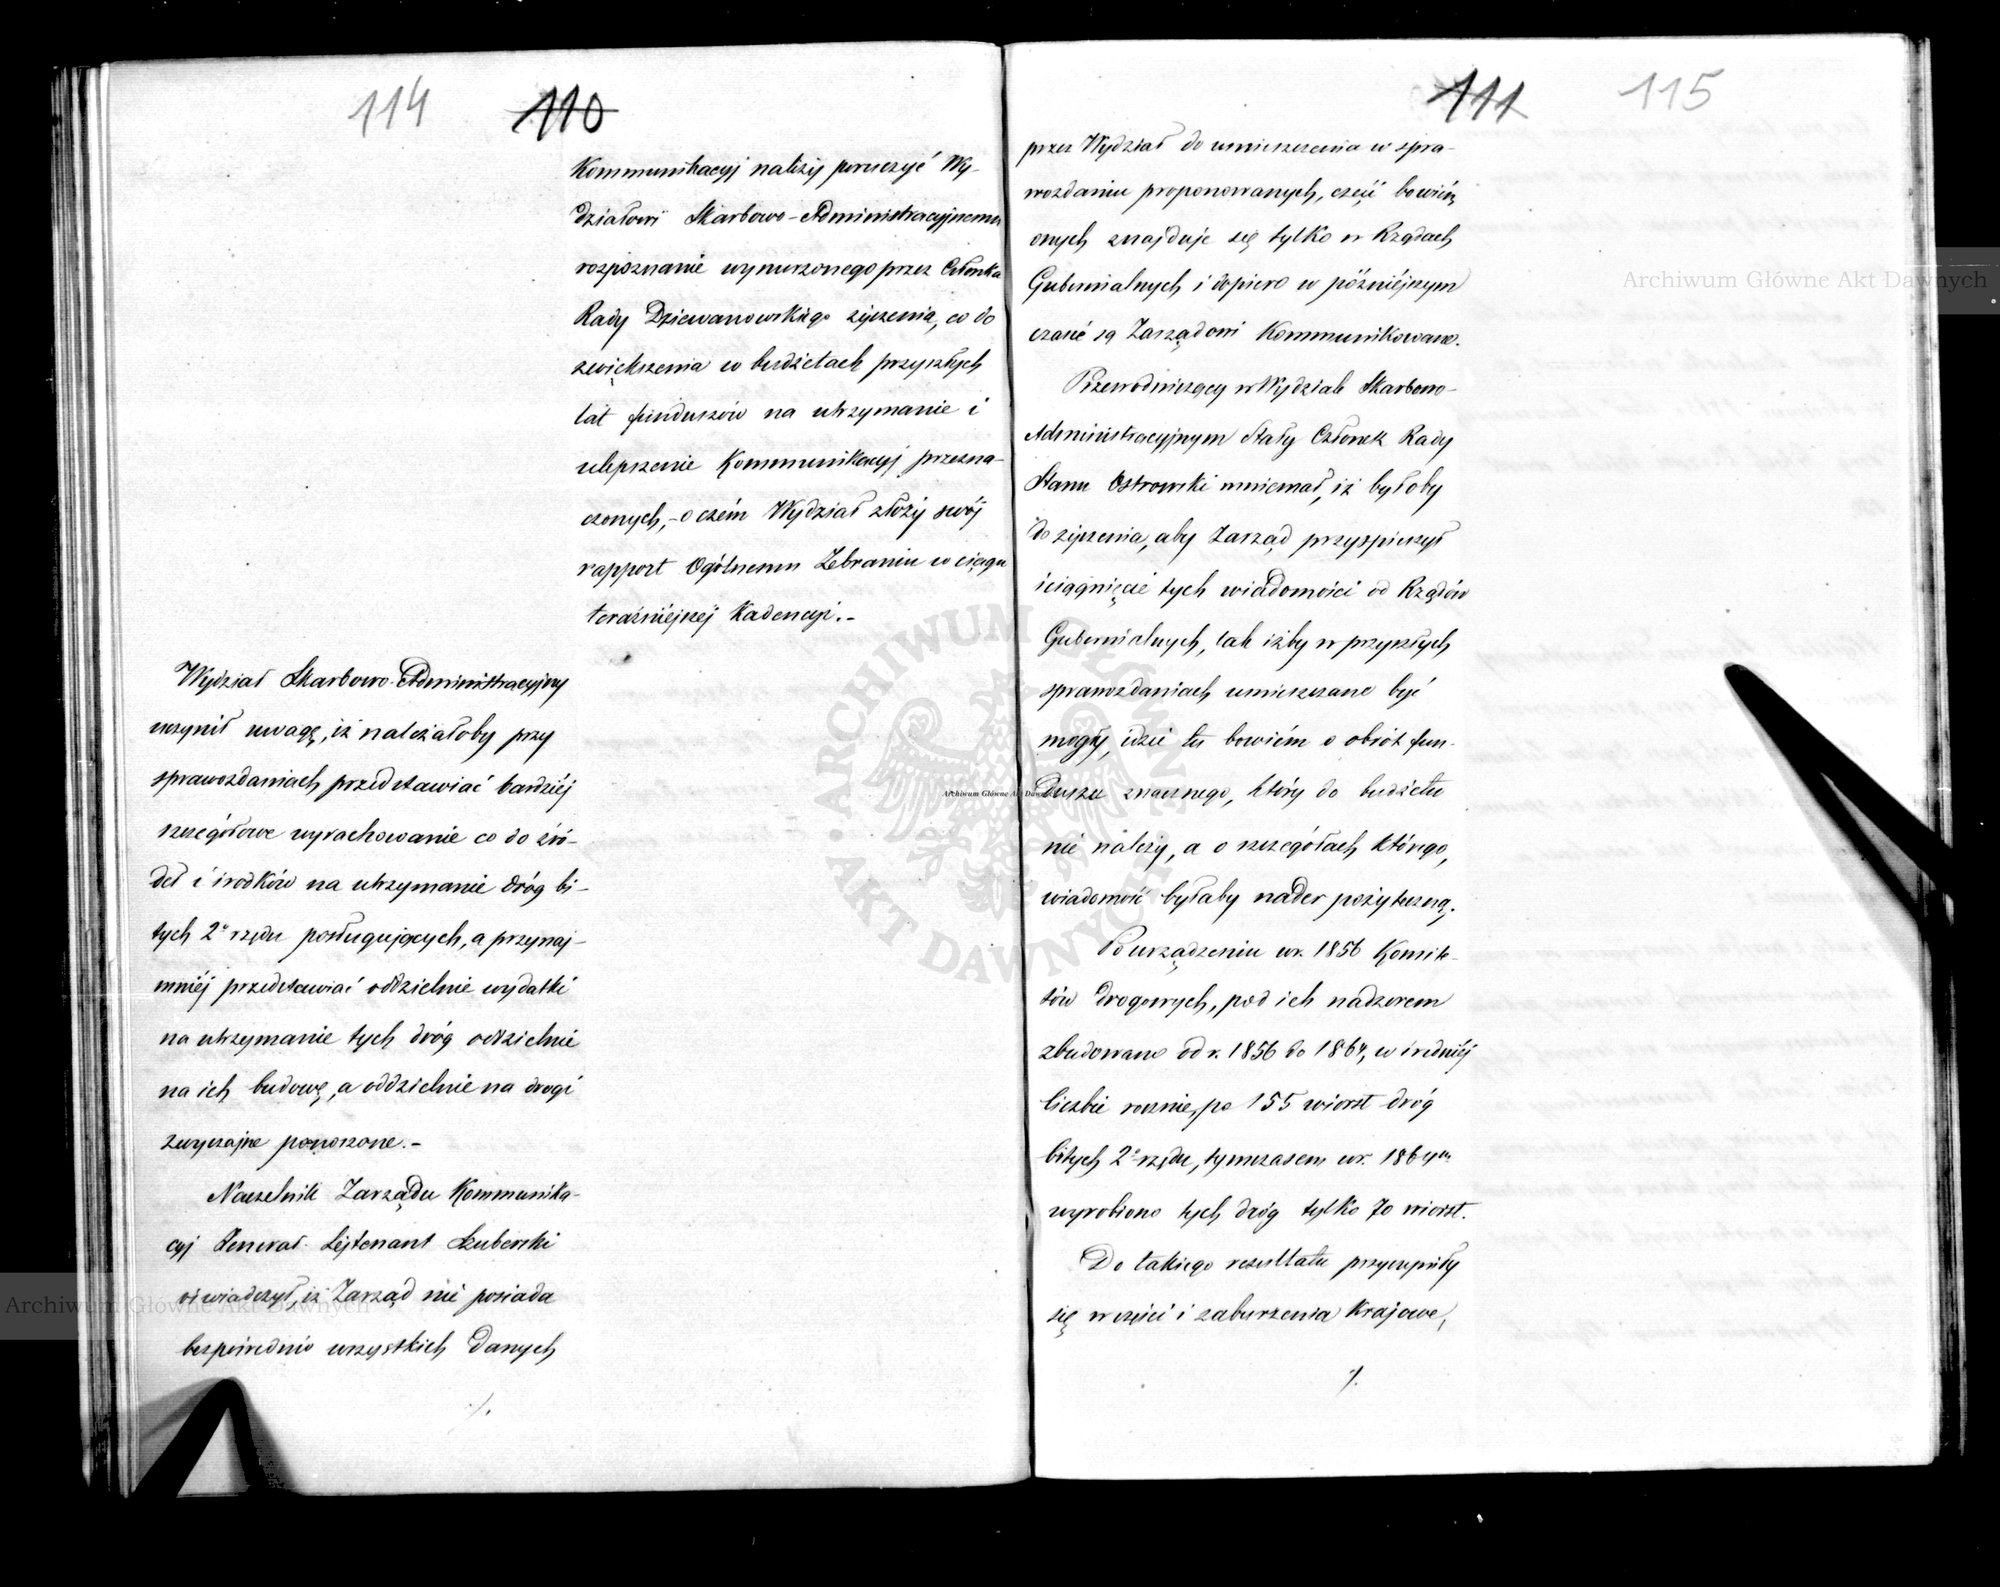 114 110
Kommunikacyj należy poruczyć Wy-
działowi Skarbowo-Administracyjnemu
rozpoznanie wynurzonego przez Członka
Rady Dziewanowskiego życzenia, co do
zwiększenia w budżetach przyszłych
lat funduszów na utrzymanie i
ulepszenie Kommunikacyj przezna-
czonych,- o czém Wydział złoży swój
rapport Ogólnemu Zebraniu w ciągu
teraźniejszéj Kadencyi.-
Wydział Skarbowo-Administracyjny
uczynił uwagę, iż należałoby przy
sprawozdaniach przedstawiać bardziéj
szczegółowe wyrachowanie co do źró-
deł i środków na utrzymanie dróg bi-
tych 2º rzędu posługujących, a przynaj-
mniéj przedstawiać oddzielnie wydatki
na utrzymanie tych dróg oddzielnie
na ich budowę, a oddzielnie na drogi
zwyczajne ponoszone.-
Naczelnik Zarządu Kommunika-
cyj Jenerał-Lejtenant Szuberski
oświadczył, iż Zarząd nie posiada
bezpośrednio wszystkich danych
./.
111 115
przez Wydział do umieszczenia w spra-
wozdaniu proponowanych, część bowiém
onych znajduje się tylko w Rządach
Gubernialnych i dopiero w późniéjszym
czasie są Zarządowi Kommunikowane.
Przewodniczący w Wydziale Skarbowo-
Administracyjnym Stały Członek Rady
Stanu Ostrowski mniemał, iż byłoby
do życzenia, aby Zarząd przyspieszył
ściągnięcie tych wiadomości od Rządów
Gubernialnych, tak iżby w przyszłych
sprawozdaniach umieszczane być
mogły, idzie tu bowiém o obrót fun-
duszu znacznego, który do budżetu
nie należy, a o szczegółach którego,
wiadomość byłaby nader pożyteczną.
Po urządzeniu w r. 1856 Komite-
tów drogowych, pod ich nadzorem
zbudowano od r. 1856 do 1864, w średniéj
liczbie rocznie, po 155 wiorst dróg
bitych 2º rzędu, tymczasem w r. 1864ym
wyrobiono tych dróg tylko 70 wiorst.
Do takiego rezultatu przyczyniły
się w części i zaburzenia Krajowe,
./.
Archiwum Główne Akt Dawnych
Archiwum Główne Akt Dawnych
Archiwum Główne Akt Dawnych
ARCHIWUM GŁÓWNE AKT DAWNYCH